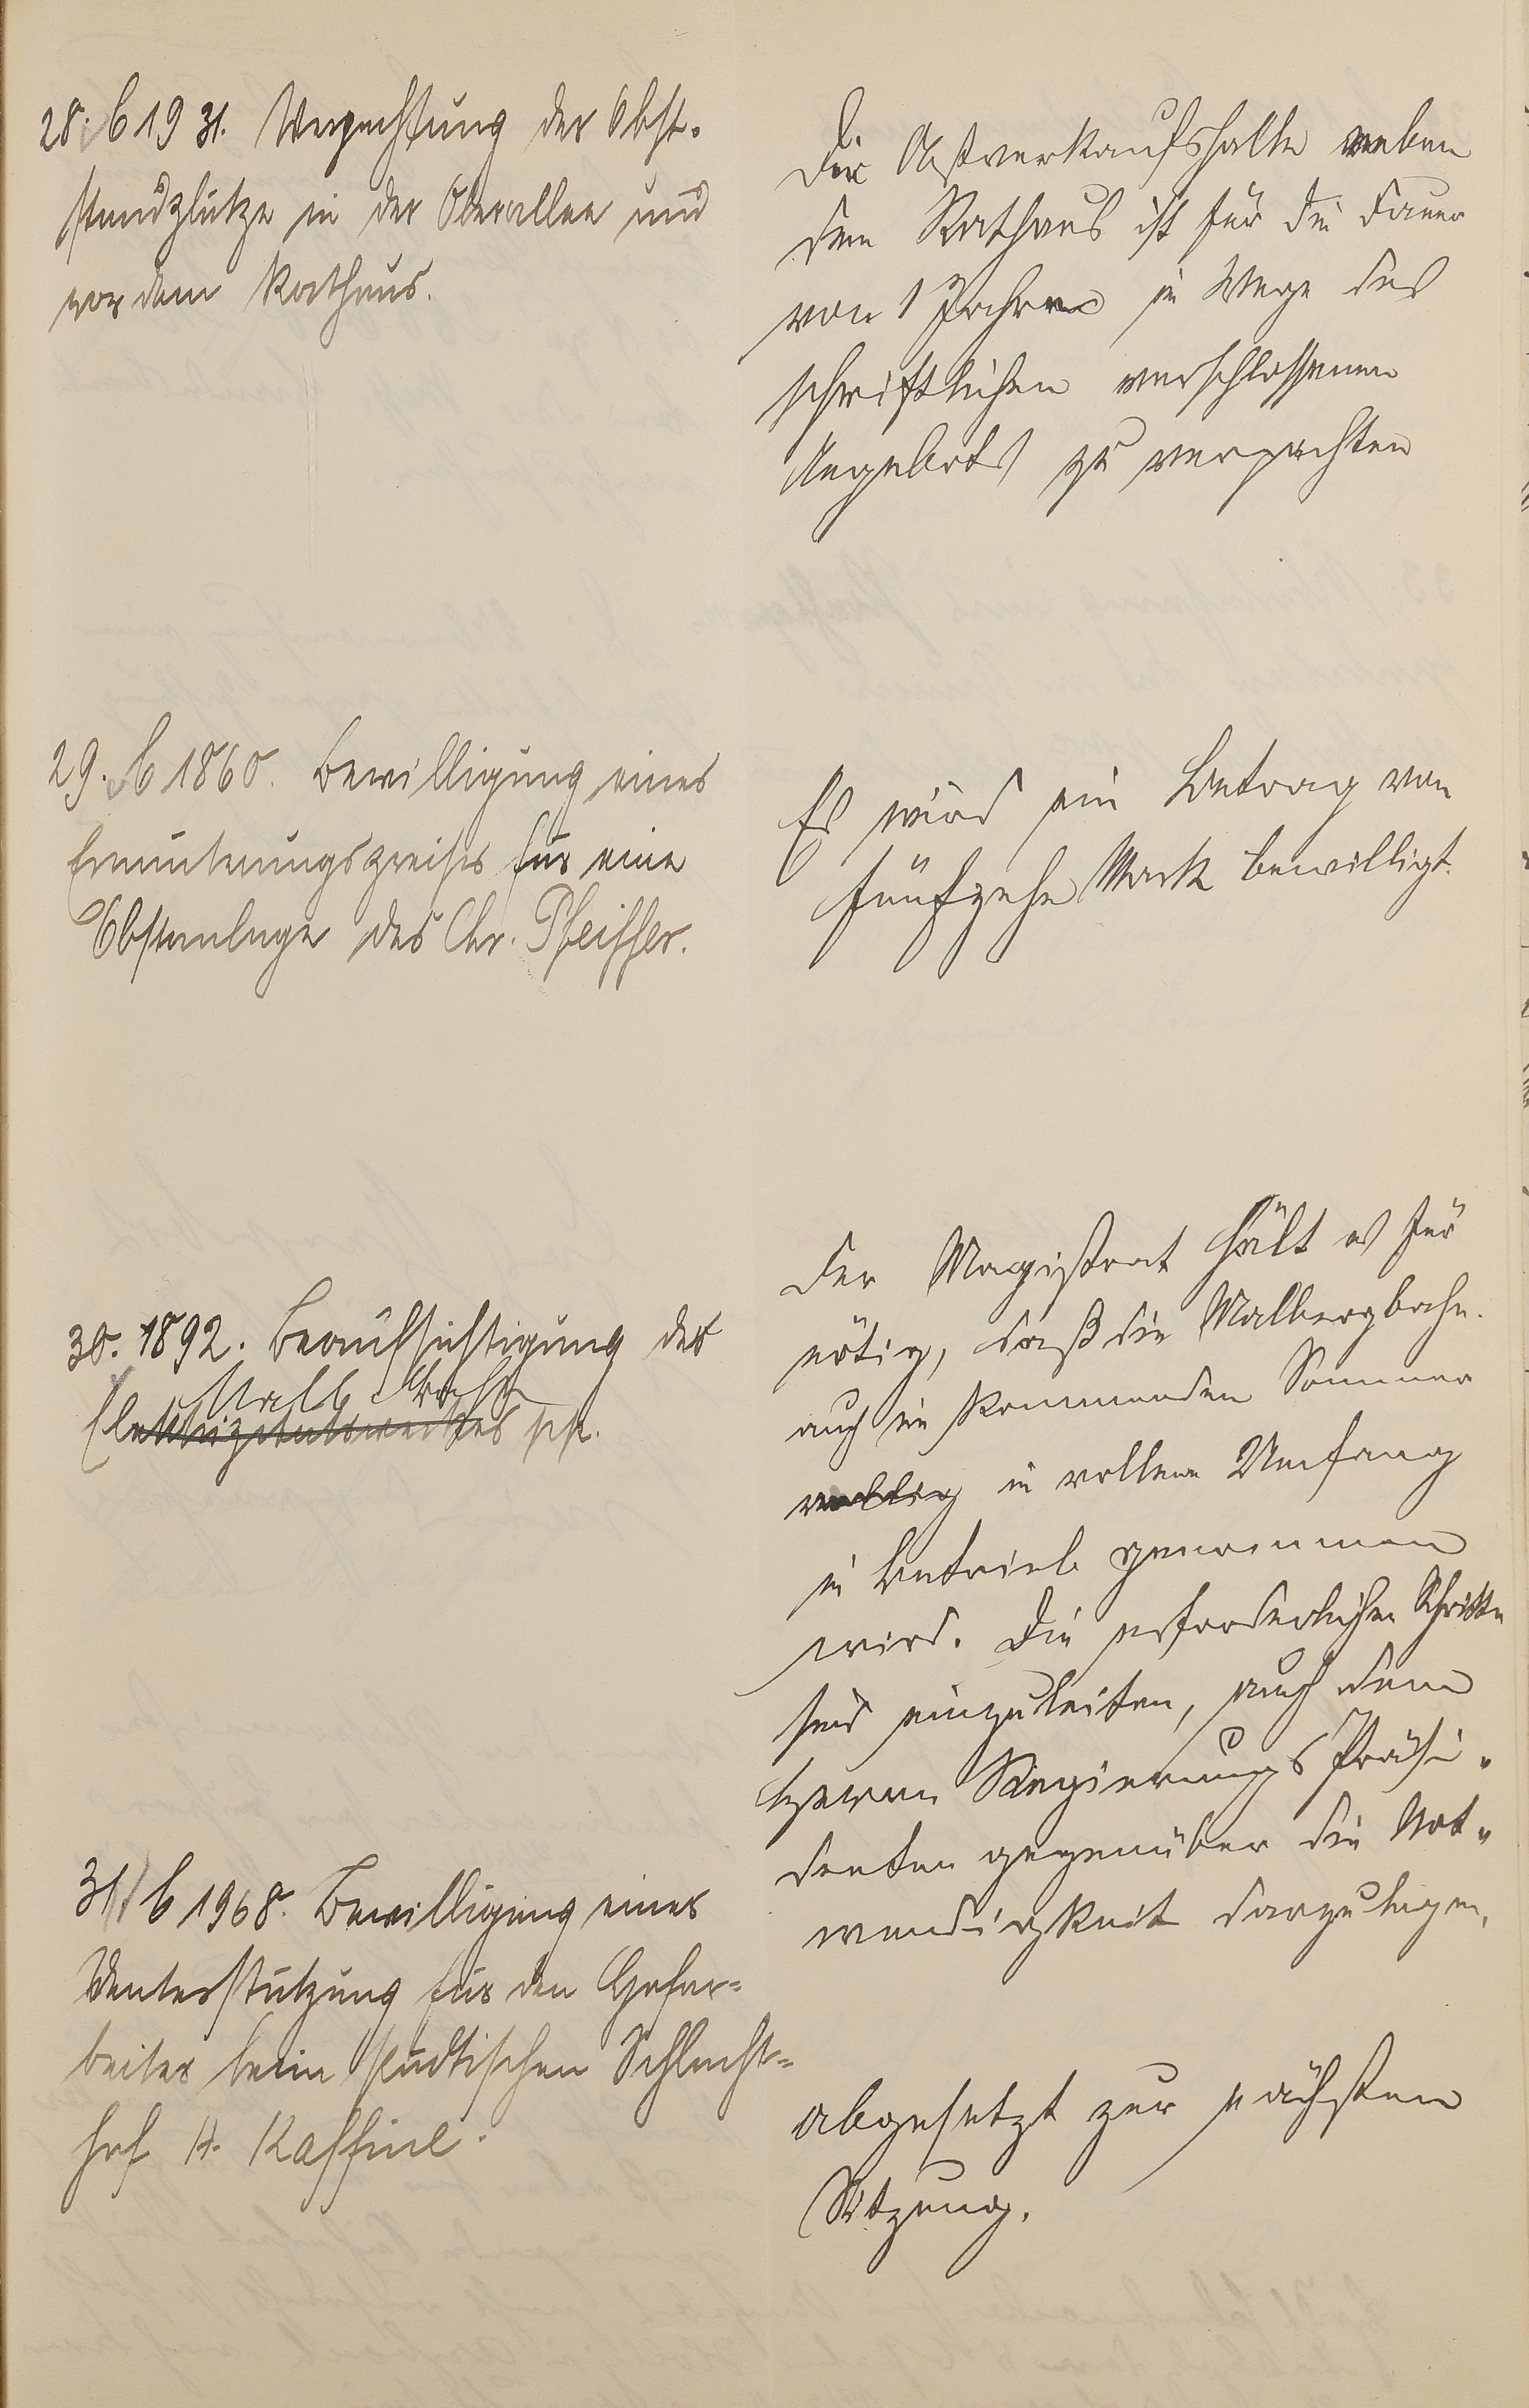 28. b 1931. Verpachtung der Obst-
standplätze in der Oberallee und
vor dem Rathaus.
Die Obstverkaufshalle neben
dem Rathaus ist für die Dauer
von 1 Jahre im Wege des
schriftlichen verschlossenen
Angebots zu verpachten
29. b 1860. Bewilligung eines
Ermunterungspreises für eine
Obstanlage des Chr. Pfeiffer.
Es wird ein Betrag von
fünfzehn Mark bewilligt.
30. 1892. Beaufsichtigung der
Malb. Bahn
Elektrizitätswerkes pp.
Der Magistrat hält es für
nötig, daß die Malbergbahn
auch im kommenden Sommer
völlig in vollem Umfang
in Betrieb genommen
wird. Die erforderlichen Schritte
sind einzuleiten, auch dem
Herrn Regierungs Präsi-
denten gegenüber die Not-
wendigkeit darzulegen.
31. b 1968. Bewilligung einer
Unterstützung für den Hofar-
beiter beim städtischen Schlacht-
hof H. Kaffine.
abgesetzt zur nächsten
Sitzung.